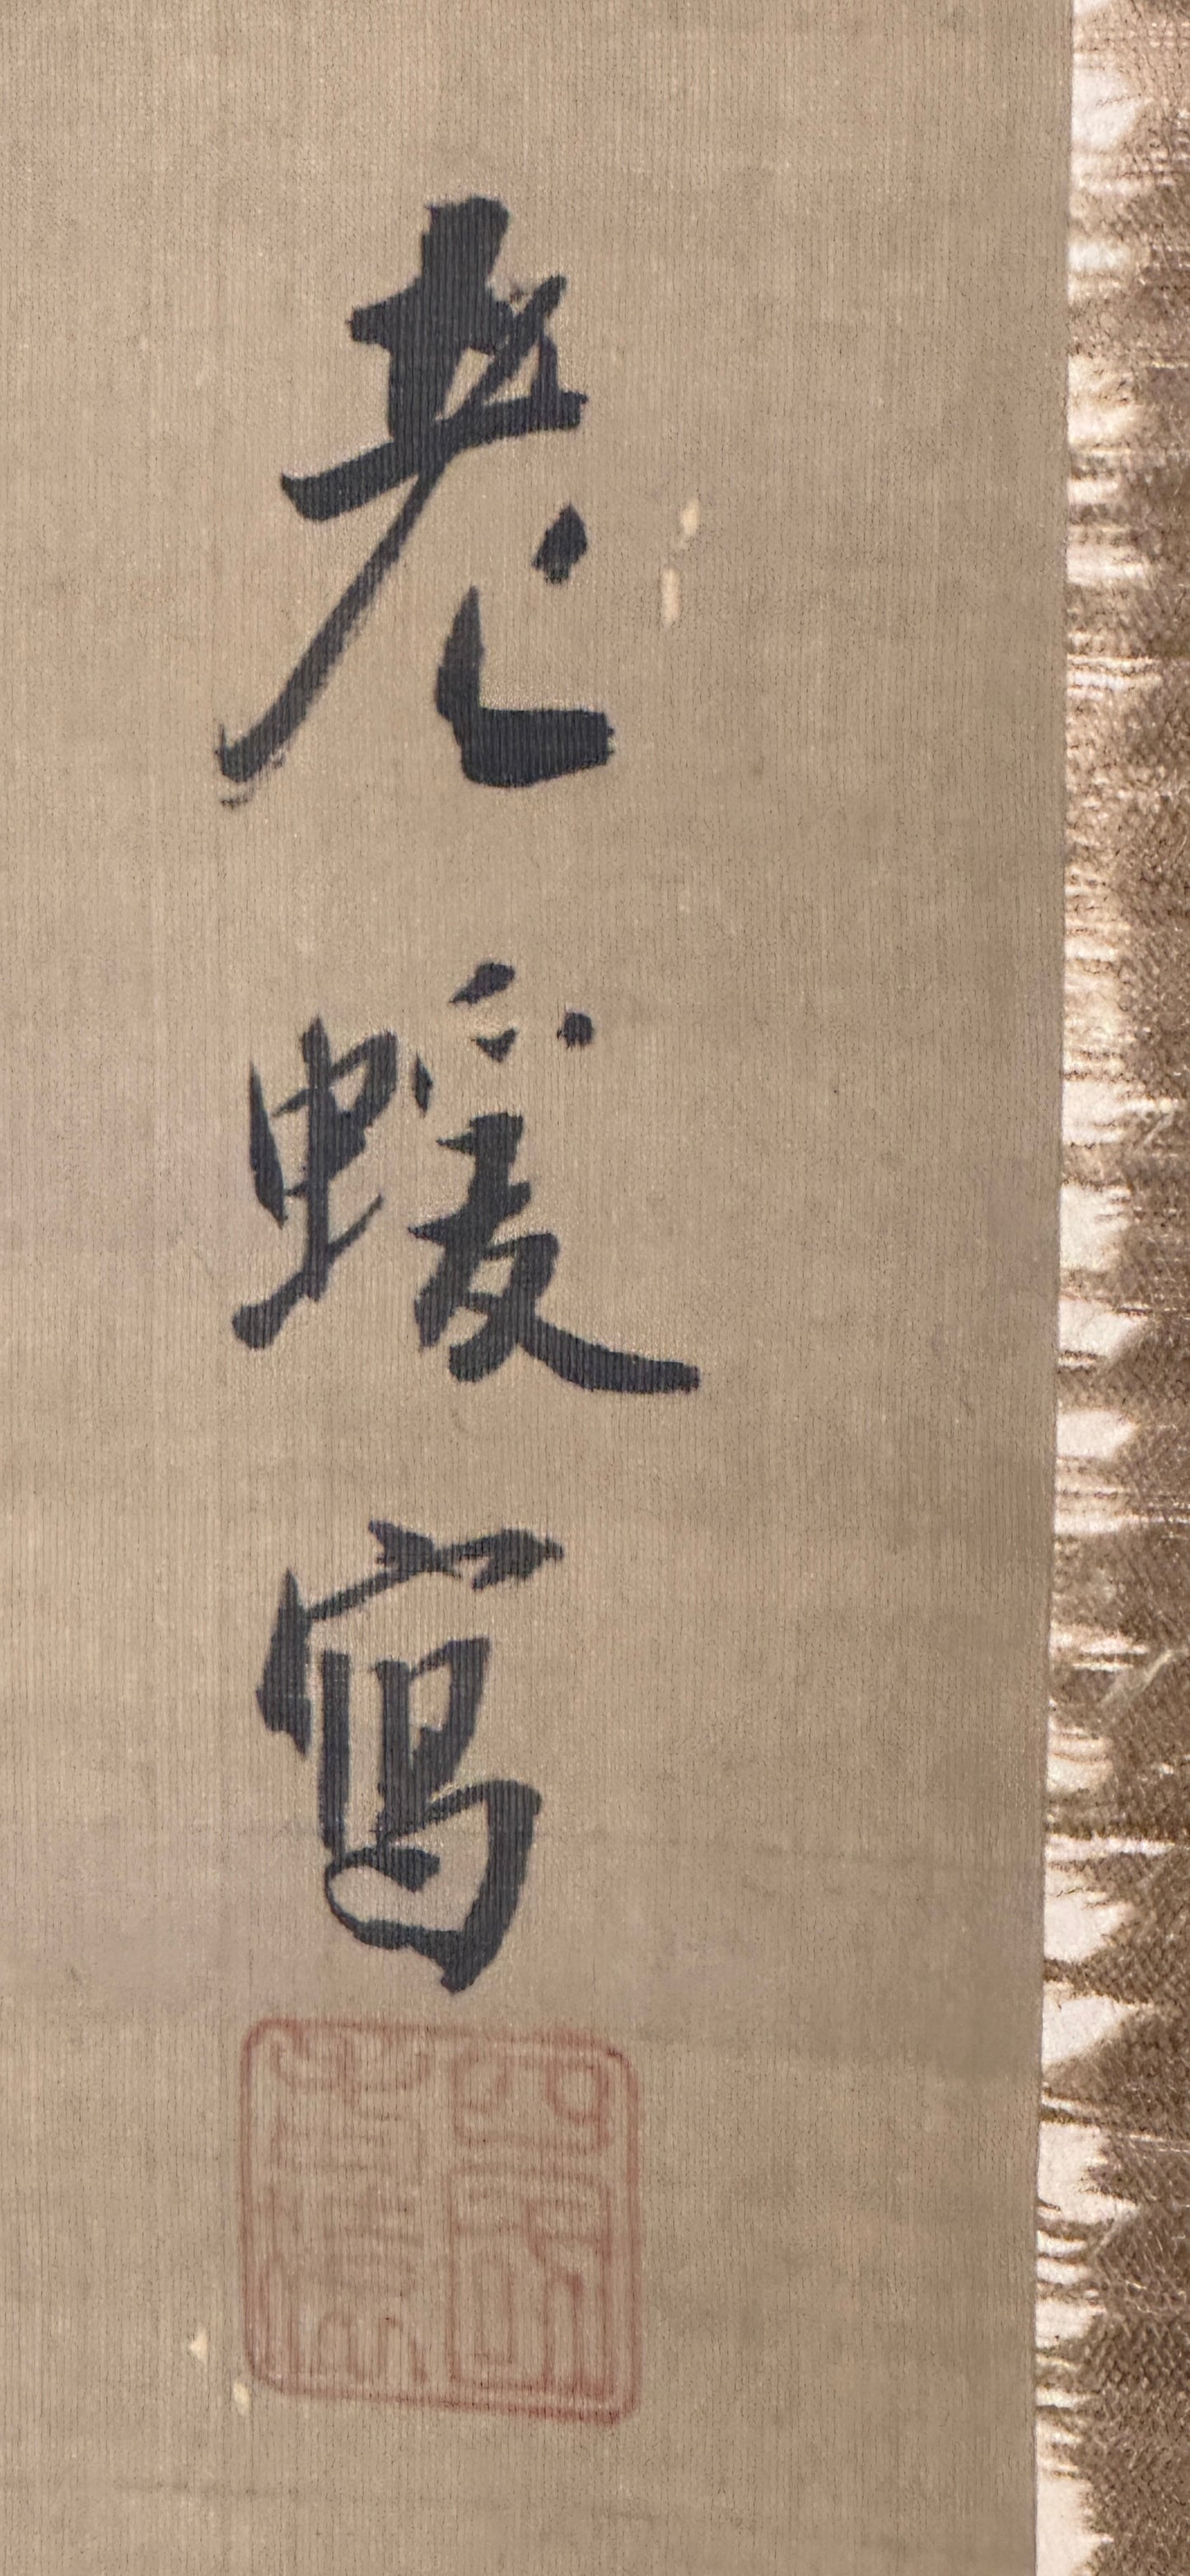 老蝯寫